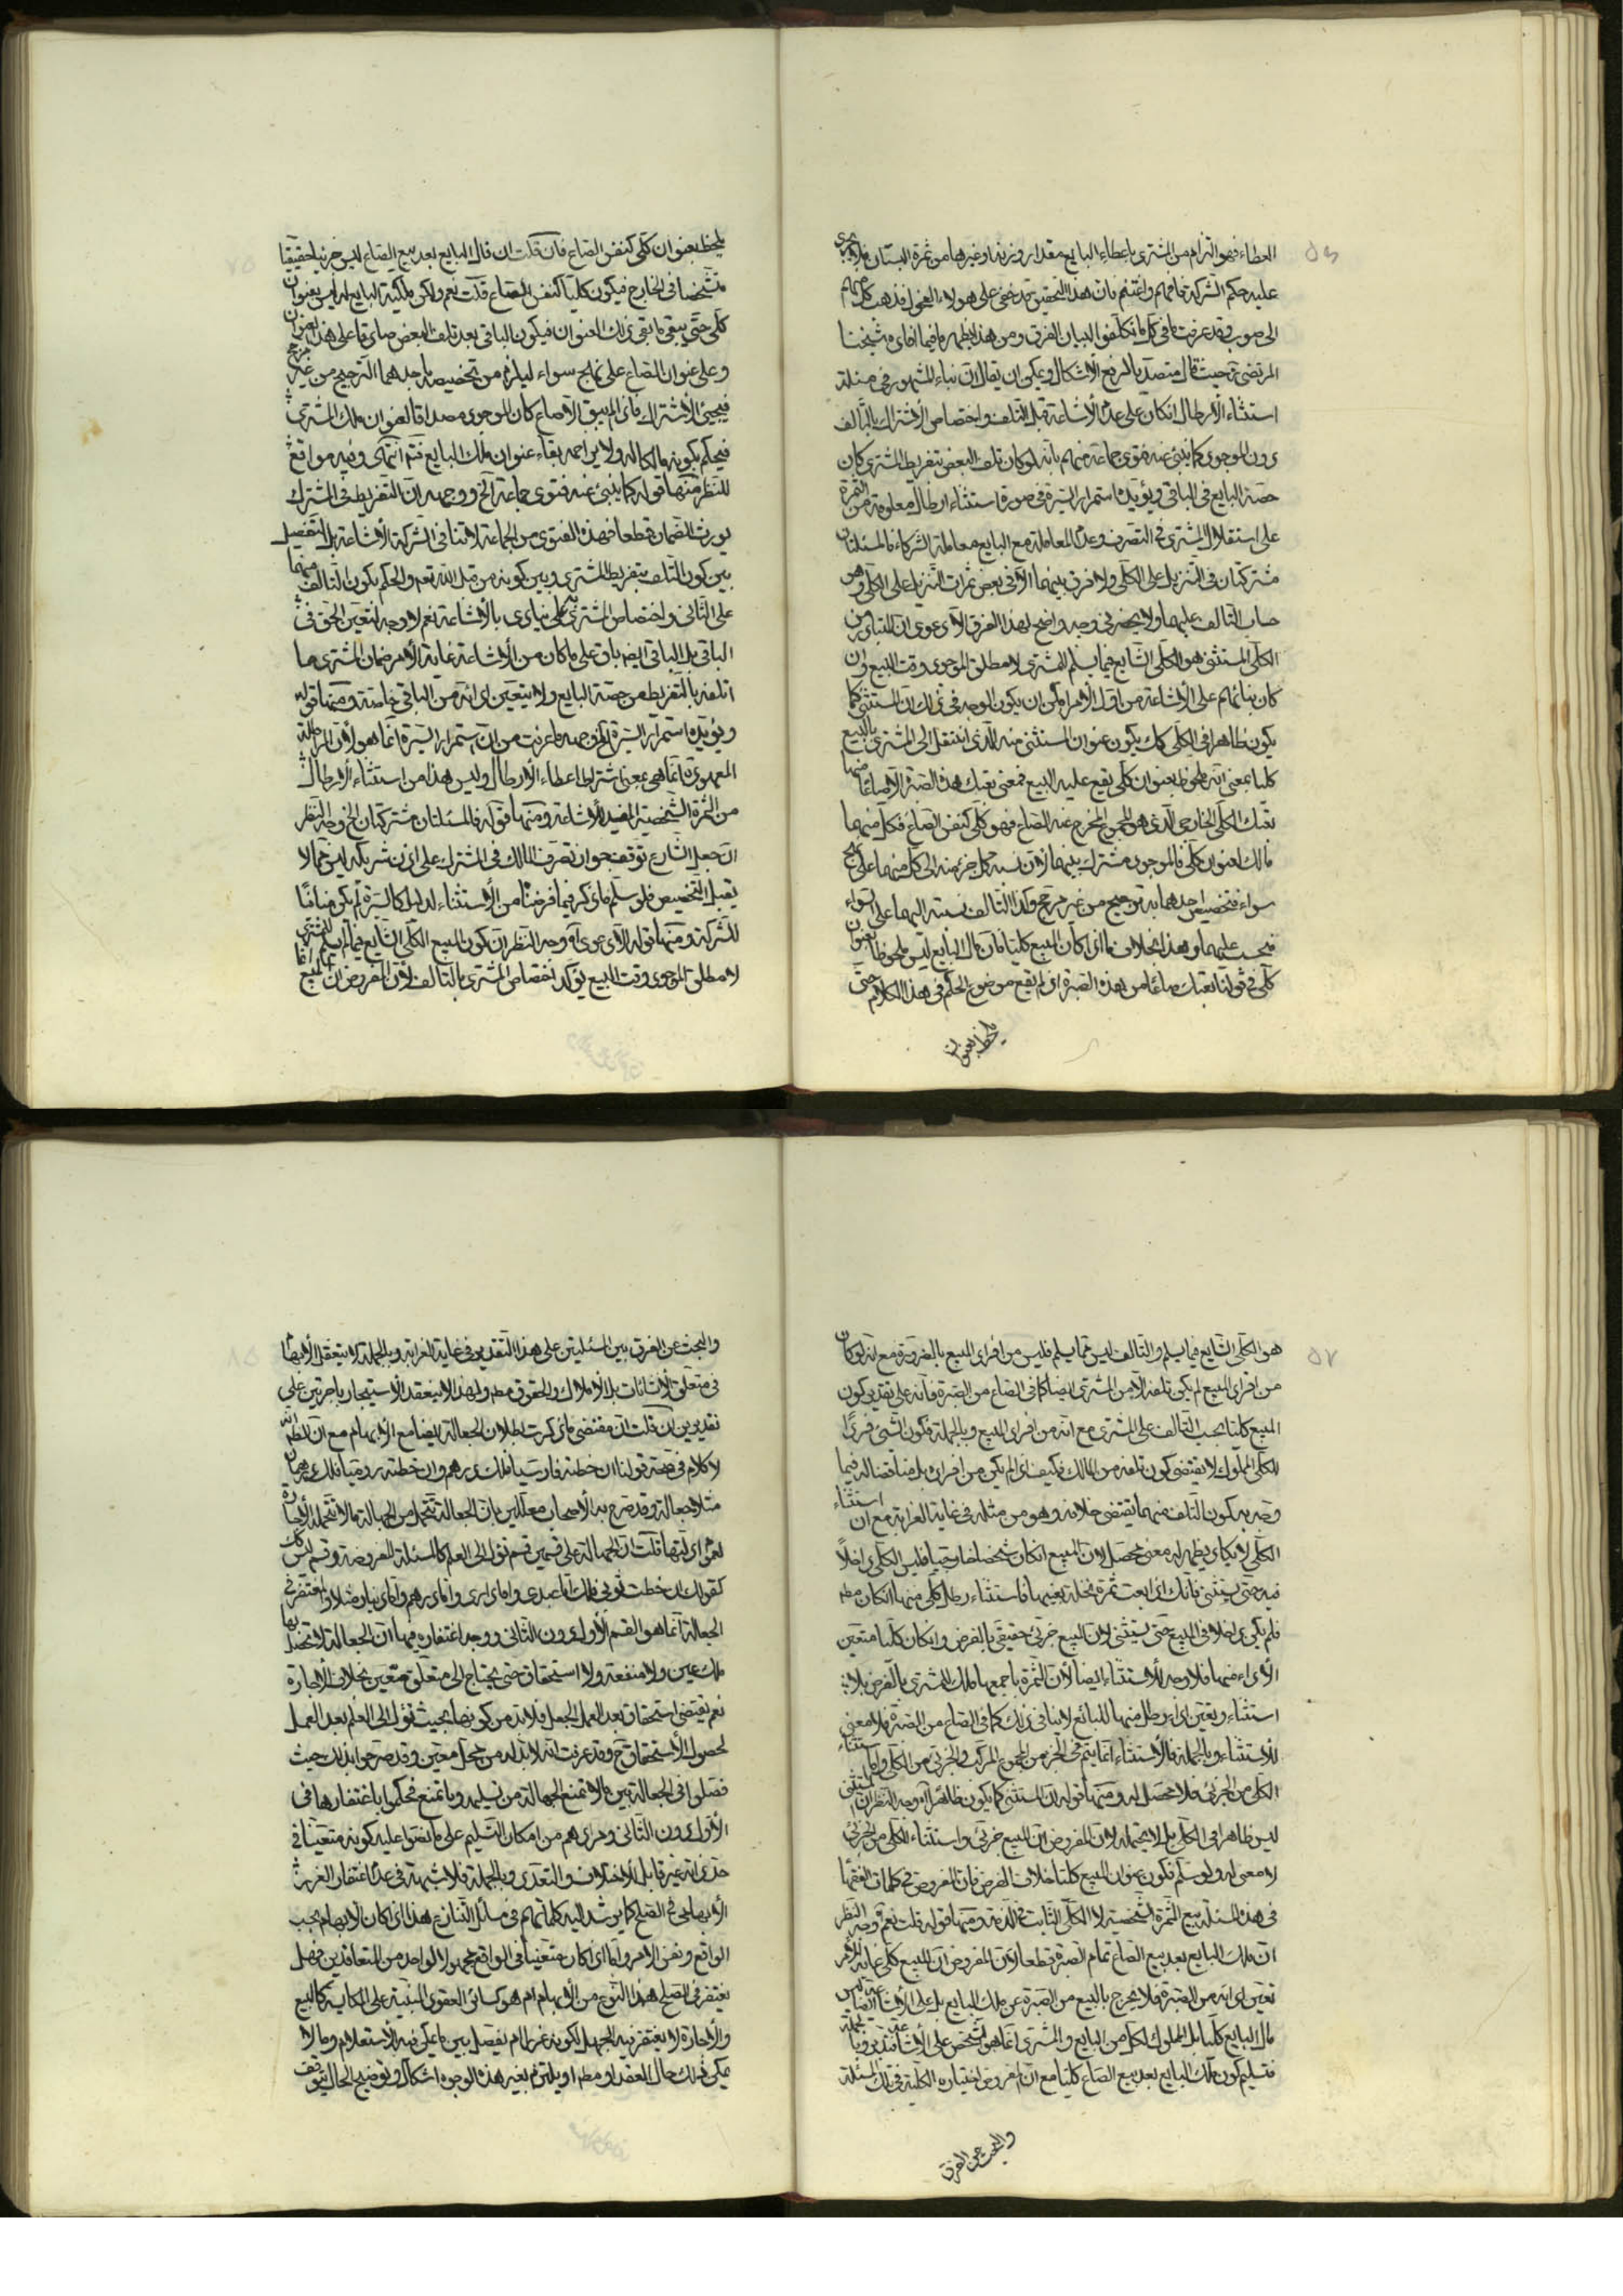 العطاء فهو التزام من المشتري باعطاء البايع مقدار وزنه او غيرها من ثمرة البستان فلا يجري
عليه حكم الشركة فافهم واغتنم فان هذا التحقيق قد خفي على هولاء الفحول فذهب كل منهم
الى صوب وقد عرفت ما في كل ما تكلفوا لبيان الفرق ومن هذا يظهر ما فيما افاده شيخنا
المرتضى حيث قال متصديا لرفع الاشكال ويمكن ان يقال ان بناء المشهور في مسئلة
استثناء الارطال ان كان على عدم الاشاعة قبل التلف واختصاص الاشتراك بالتالف
دون الموجود كما ينبئ عنه فتوى جماعة منهم بانه لو كان تلف البعض بتفريط المشتري كان
حصة البايع في الباقي ويؤيده استمرار السيرة في صورة استثناء ارطال معلومة من الثمرة
على استقلال المشتري في التصرف وعدم المعاملة مع البايع معاملة الشركاء فالمسئلتان
مشتركتان في التنزيل على الكلي ولا فرق بينهما الا في بعض ثمرات التنزيل على الكلي وهو
حساب التالف عليهما ولا يحضرني وجه واضح لهذا الفرق الا دعوى ان المتبادر من
الكلي المستثنى هو الكلي الشايع فيما يسلم للمشتري لا مطلق الموجود وقت البيع وان
كان بنائهم على الاشاعة من اول الامر امكن ان يكون الوجه في ذلك ان المستثنى كما
يكون ظاهرا في الكلي كك يكون عنوان المستثنى منه الذي انتقل الى المشتري بالبيع
كليا بمعنى انه ملحوظ بعنوان كلي يقع عليه البيع فمعنى بعتك هذه الصبرة الا صاعا منها
بعتك الكلي الخارجي الذي هو المجموع المخرج عنه الصاع فهو كلي كنفس الصاع فكل منهما
مالك لعنوان كلي فالموجود مشترك بينهما لان نسبة كل جزء منه الى كل منهما على نهج
سواء فتخصيص احدهما به ترجيح من غير مرجح وكذا التالف نسبته اليهما على السواء
فيحسب عليهما وهذا بخلاف ما اذا كان المبيع كليا فان مال البايع ليس ملحوظا بعنوان
كلي في قولنا بعتك صاعا من هذه الصبرة اذ لم يقع موضوع الحكم في هذا الكلام حتى
يلحظ بعنوان
يلحظ بعنوان كلي كنفس الصاع فان قلت ان مال البايع بعد بيع الصاع ليس جزئيا حقيقيا
متشخصا في الخارج فيكون كليا كنفس الصاع قلت نعم ولكن ملكية البايع له ليس بعنوان
كلي حتى يبقى ما بقي ذلك العنوان فيكون الباقي بعد تلف البعض صادقا على هذا العنوان
وعلى عنوان الصاع على نهج سواء ليلزم من تخصيصه باحدهما الترجيح من غير مرجح
فيجئ الاشتراك فاذا لم يبق الا صاع كان الموجود مصداقا لعنوان ملك المشتري
فيحكم بكونه مالكا له ولا يزاحمه بقاء عنوان ملك البايع فتم انتهى وفيه مواقع
للنظر منها قوله كما ينبئ عنه فتوى جماعة الخ ووجهه ان التفريط في المشترك
يورث الضمان قطعا فهذه الفتوى من الجماعة لا تنافي الشركة الاشاعة بل التفصيل
بين كون التلف بتفريط المشتري وبين كونه من قبل الله تعم والحكم بكون التالف منهما
على الثاني واختصاص المشتري به كل ينادي بالاشاعة نعم لا وجه لتعين الحق في
الباقي بل الباقي ايضا باق على ما كان من الاشاعة غاية الامر ضمان المشتري ما
اتلفه بالتفريط من حصة البايع ولا يتعين اداؤه من الباقي خاصة ومنها قوله
ويؤيده استمرار السيرة الخ وجهه ما عرفت من ان استمرار السيرة انما هو لان المعاملة
المعهودة انما هي بمعنى اشتراط اعطاء الارطال وليس هذا من استثناء الارطال
من الثمرة الشخصية المفيد للاشاعة ومنها قوله فالمسئلتان مشتركتان الخ وجه النظر
ان جعل الشارع توقف جواز تصرف المالك في المشترك على اذن شريكه ليس مما لا
يقبل التخصيص فلو سلم ما ذكر فيما فرضنا من الاستثناء لدليل كالسيرة لم يكن منافيا
للشركة ومنها قوله الا دعوى آه وجه النظر ان كون المبيع الكلي الشايع فيما يسلم للمشتري
لا مطلق الموجود وقت البيع يؤكد اختصاص المشتري بالتالف لان المفروض ان المبيع انما
هو الكلي الشايع فيما يسلم والتالف ليس مما يسلم فليس من افراد المبيع بالضرورة مع انه لو كان
من افراد المبيع لم يكن تلفه الا من المشتري ايضا كما في الصاع من الصبرة فانه على تقدير كون
المبيع كليا يحسب التالف على المشتري مع انه من افراد المبيع وبالجملة فكون الشئ فردا
للكلي المملوك لا يقتضي كون تلفه من المالك فكيف اذا لم يكن من افراده بل مناقضا له فيما
وجه به كون التلف منهما يقتضي خلافه وهو من مثله في غاية الغرابة مع ان استثناء
الكلي لا يكاد يظهر له معنى محصل لان المبيع ان كان شخصا خارجيا فليس الكلي داخلا
فيه حتى يستثنى فانك اذا بعت ثمرة نخلة بعينها فاستثناء رطل كلي منها ان كان مط
فلم يكن داخلا في المبيع حتى يستثنى لان المبيع جزئي حقيقي بالفرض وان كان كليا متعين
الاداء منها فلا وجه للاستثناء ايضا لان الثمرة باجمعها ملك للمشتري بالفرض بلا
استثناء وتعين اداء رطل منها للبائع لا ينافي ذلك كما في الصاع من الصبرة فلا معنى
للاستثناء وبالجملة فالاستثناء انما يتم في الجزء من المجموع المركب والجزئي من الكلي واما استثناء
الكلي من الجزئي فلا محصل له ومنها قوله ان المستثنى كما يكون ظاهرا آه وجه النظر ان المستثنى
ليس ظاهرا في الكلي بل لا يحتمله لان المفروض ان المبيع جزئي واستثناء الكلي من الجزئي
لا معنى له ولو سلم فكون عنوان المبيع كليا خلاف الفرض فان المفروض في كلمات الفقهاء
في هذه المسئلة بيع الثمرة الشخصية لا الكلي الثابت في الذمة ومنها قوله قلت نعم وجه النظر
ان ملك البايع بعد بيع الصاع تمام الصبرة قطعا لان المفروض ان المبيع كلي غاية الامر
تعين اداءه من الصبرة فلا يخرج بالبيع من الصبرة عن ملك البايع بل على الاشاعة ايضا ليس
مال البايع كليا بل المملوك لكل من البايع والمشتري انما هو الشخص على الاشاعة فتدبر وبالجملة
فتسليم كون ملك البايع بعد بيع الصاع كليا مع ان المفروض اختياره الكلية في تلك المسئلة
والبحث عن الفرق
والبحث عن الفرق بين المسئلتين على هذا التقدير في غاية الغرابة وبالجملة لا يتعقل الابهام
في متعلق الانشائات بل الاملاك والحقوق مط ولهذا لا ينعقد الاستيجار باجرتين على
تقديرين ان قلت ان مقتضى ما ذكرت بطلان الجعالة ايضا مع الابهام مع ان الظاهر انه
لا كلام في صحة قولنا ان خطته فارسيا فلك درهم وان خطته روميا فلك درهمان
مثلا جعالة وقد صرح به الاصحاب معللين بان الجعالة تتحمل من الجهالة ما لا تتحمله الاجارة
قلت ان الجهالة على قسمين قسم تؤل الى العلم كالمسئلة المفروضة وقسم ليس كك
كقولك ان خطت ثوبي فلك اما عبدي واما داري واما درهم واما دينار مثلا والمغتفر في
الجعالة انما هو القسم الاول دون الثاني ووجه اغتفاره فيها ان الجعالة لا تحصل بها
ملك عين ولا منفعة ولا استحقاق حتى يحتاج الى متعلق متعين بخلاف الاجارة
نعم يقتضي استحقاق بعد العمل الجعل فلا بد من كونها بحيث تؤل الى العلم بعد العمل
لحصول الاستحقاق ح وقد عرفت انه لا بد له من محل معين وقد صرحوا بذلك حيث
فصلوا في الجعالة بين ما لا تمنع الجهالة من تسليمه وما تمنع فحكموا باغتفارها في
الاول دون الثاني ومرادهم من امكان التسليم على ما نصوا عليه كونه متعينا في
حد ذاته غير قابل للاختلاف والتعدي وبالجملة فلا شبهة في عدم اغتفار الغرر
الابهامي في الصلح كما يرشد اليه كلماتهم في مسائل التنازع هذا اذا كان الابهام بحسب
الواقع ونفس الامر واما اذا كان متعينا في الواقع مجهولا لواحد من المتعاقدين فهل
يغتفر في الصلح هذا النوع من الابهام ام هو كسائر العقود المبنية على المكايسة كالبيع
والاجارة لا يغتفر فيه الجهل لكونه غررا ام يفصل بين ما يمكن فيه الاستعلام وما لا
يمكن فيه ذلك حال العقد او مطلقا او يلتزم بغير هذه الوجوه اشكال وتوضيح الحال يتوقف